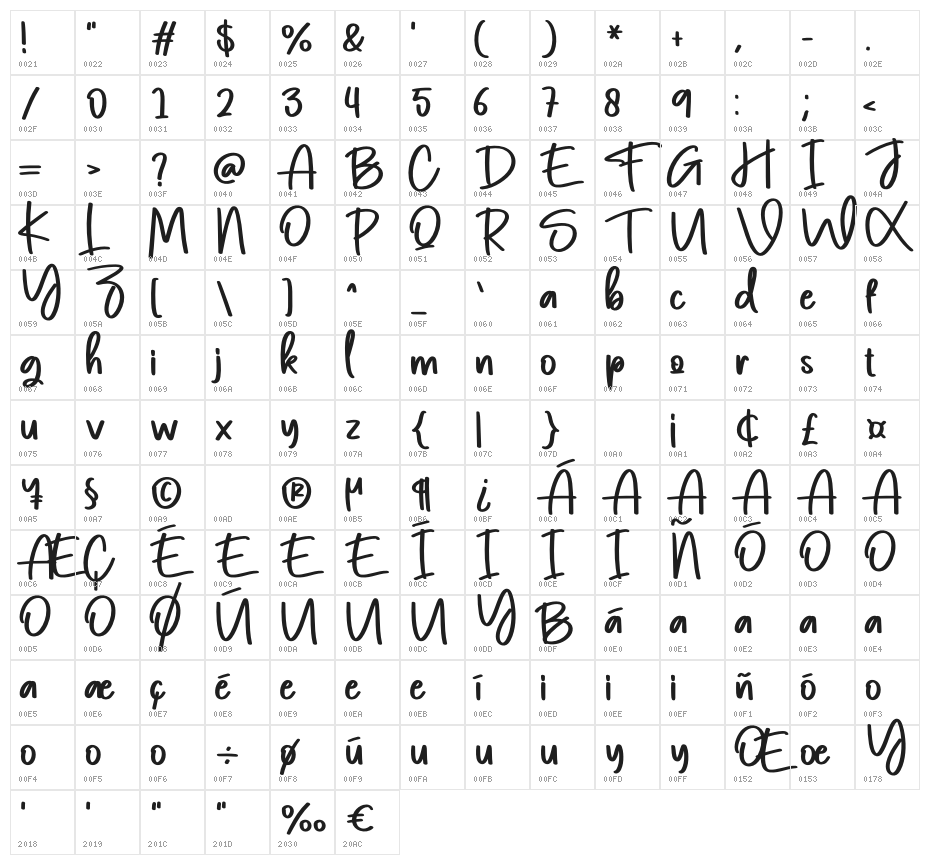 ! " # $ % & ' ( ) * + , - .
0021 0022 0023 0024 0025 0026 0027 0028 0029 002A 002B 002C 002D 002E
/ 0 1 2 3 4 5 6 7 8 9 : ; <
002F 0030 0031 0032 0033 0034 0035 0036 0037 0038 0039 003A 003B 003C
= > ? @ A B C D E F G H I J
003D 003E 003F 0040 0041 0042 0043 0044 0045 0046 0047 0048 0049 004A
K L M N O P Q R S T U V W X
004B 004C 004D 004E 004F 0050 0051 0052 0053 0054 0055 0056 0057 0058
Y Z [ \ ] ^ _ ` a b c d e f
0059 005A 005B 005C 005D 005E 005F 0060 0061 0062 0063 0064 0065 0066
g h i j k l m n o p q r s t
0067 0068 0069 006A 006B 006C 006D 006E 006F 0070 0071 0072 0073 0074
u v w x y z { | } ¡ ¢ £ ¤
0075 0076 0077 0078 0079 007A 007B 007C 007D 00A0 00A1 00A2 00A3 00A4
¥ § © ® µ ¶ ¿ Á A A A A A
00A5 00A7 00A9 00AD 00AE 00B5 00B6 00BF 00C0 00C1 00C2 00C3 00C4 00C5
Æ Ç É E E E Í I I I Ñ Ó O O
00C6 00C7 00C8 00C9 00CA 00CB 00CC 00CD 00CE 00CF 00D1 00D2 00D3 00D4
O O Ø Ú U U U Y B á a a a a
00D5 00D6 00D8 00D9 00DA 00DB 00DC 00DD 00DF 00E0 00E1 00E2 00E3 00E4
a æ ç é e e e í i i i ñ ó o
00E5 00E6 00E7 00E8 00E9 00EA 00EB 00EC 00ED 00EE 00EF 00F1 00F2 00F3
o o o ÷ ø ú u u u y y Œ œ Y
00F4 00F5 00F6 00F7 00F8 00F9 00FA 00FB 00FC 00FD 00FF 0152 0153 0178
' ' " " ‰ €
2018 2019 201C 201D 2030 20AC